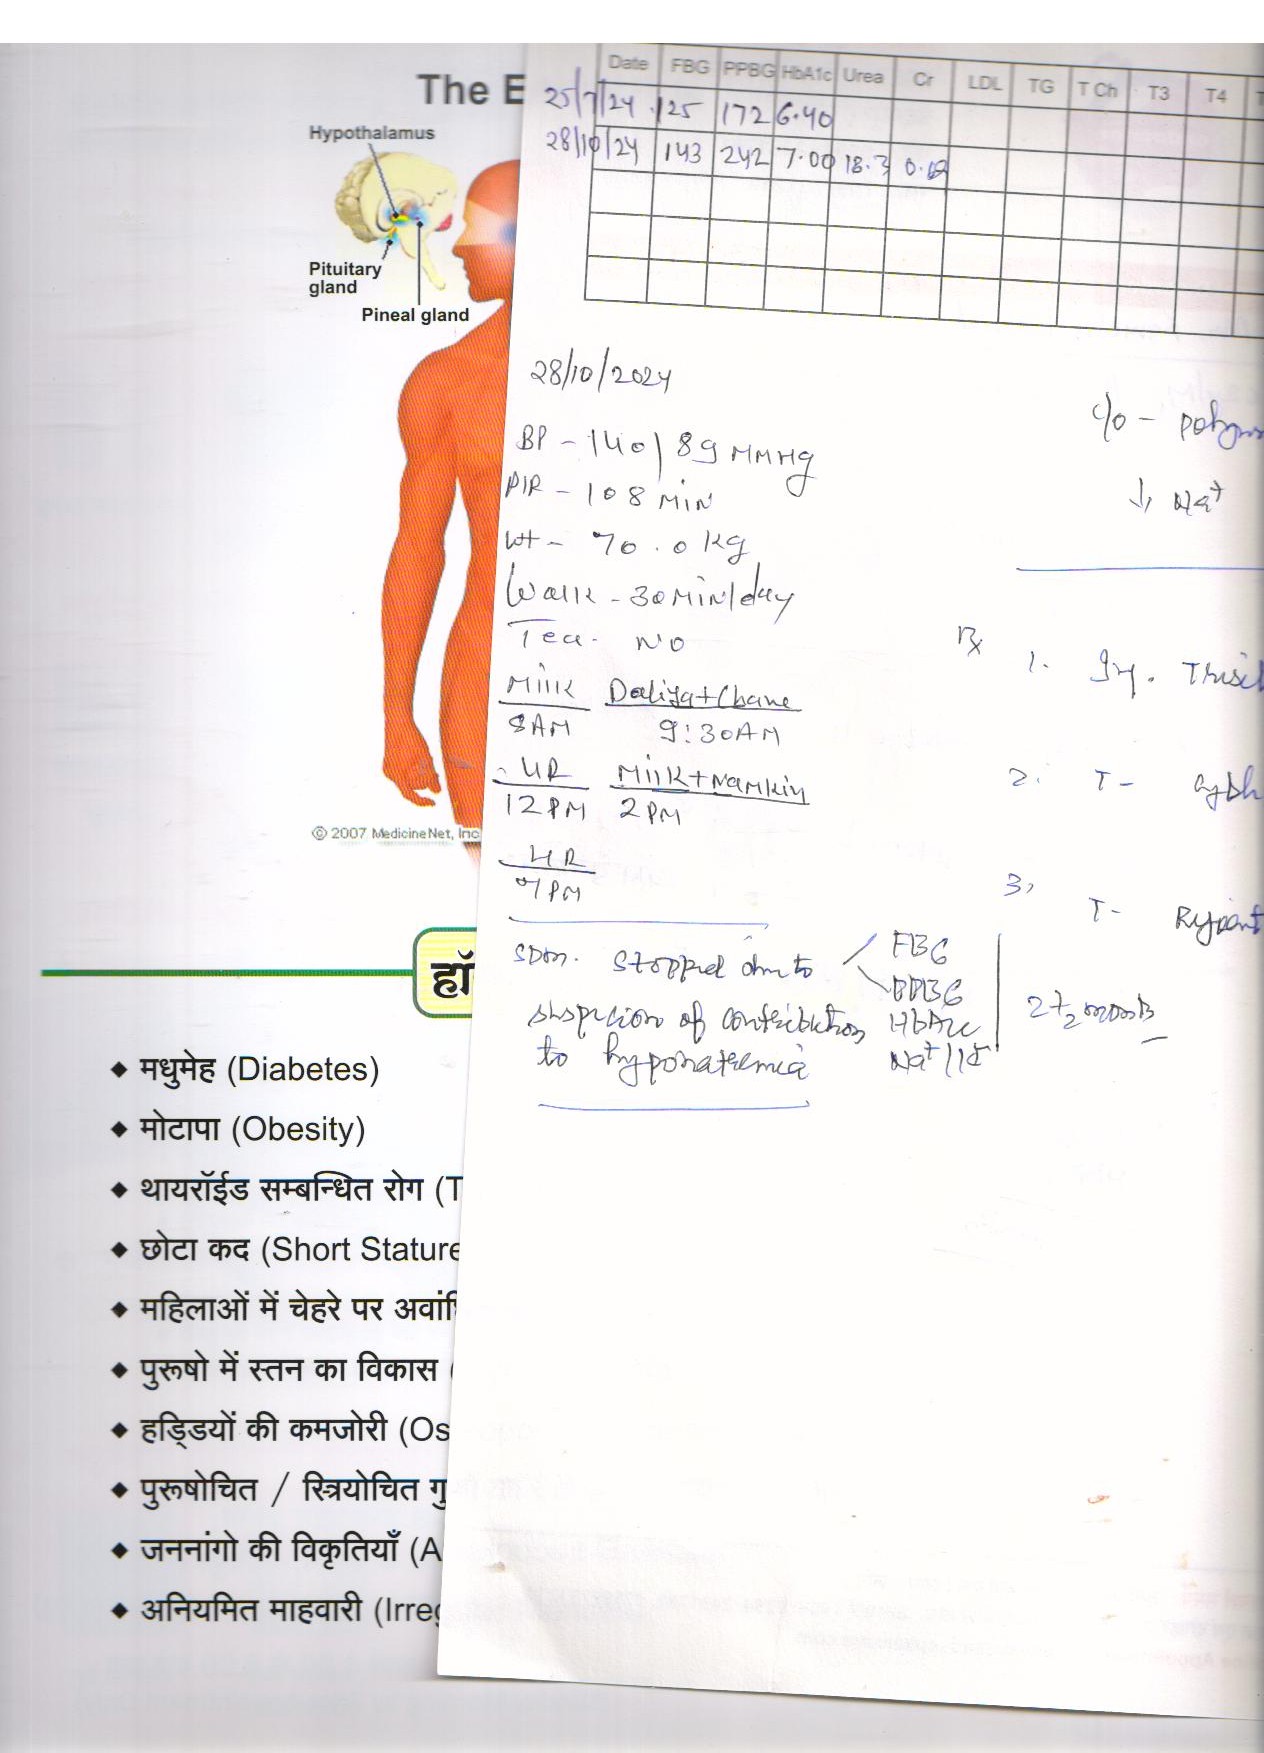 The E
Hypothalamus
Pituitary
gland
Pineal gland
© 2007 MedicineNet, Inc
हॉ
◆ मधुमेह (Diabetes)
◆ मोटापा (Obesity)
◆ थायरॉईड सम्बन्धित रोग (T
◆ छोटा कद (Short Stature
◆ महिलाओं में चेहरे पर अवांि
◆ पुरूषो में स्तन का विकास (
◆ हड्डियों की कमजोरी (Os
◆ पुरूषोचित / स्त्रियोचित गु
◆ जननांगो की विकृतियाँ (A
◆ अनियमित माहवारी (Irreg
Date FBG PPBG HbA1c Urea Cr LDL TG T Ch T3 T4 T
25/7/24 125 172 6.40
28/10/24 143 242 7.00 18.3
28/10/2024
BP - 140/89 MMHg
P/R - 108 MIN
Wt - 70.0 Kg
Walk - 30 MIN/day
Tea - NO
Milk Daliya+Chane
8AM 9:30AM
4R Milk+Namkin
12PM 2PM
4R
7PM
stopped due to
suspicion of contribution
to hyponatremia
FBG
PPBG
HbA1c
Na+/K+
c/o -
↓ Na+
Rx
1. Inj.
2. T-
3. T-